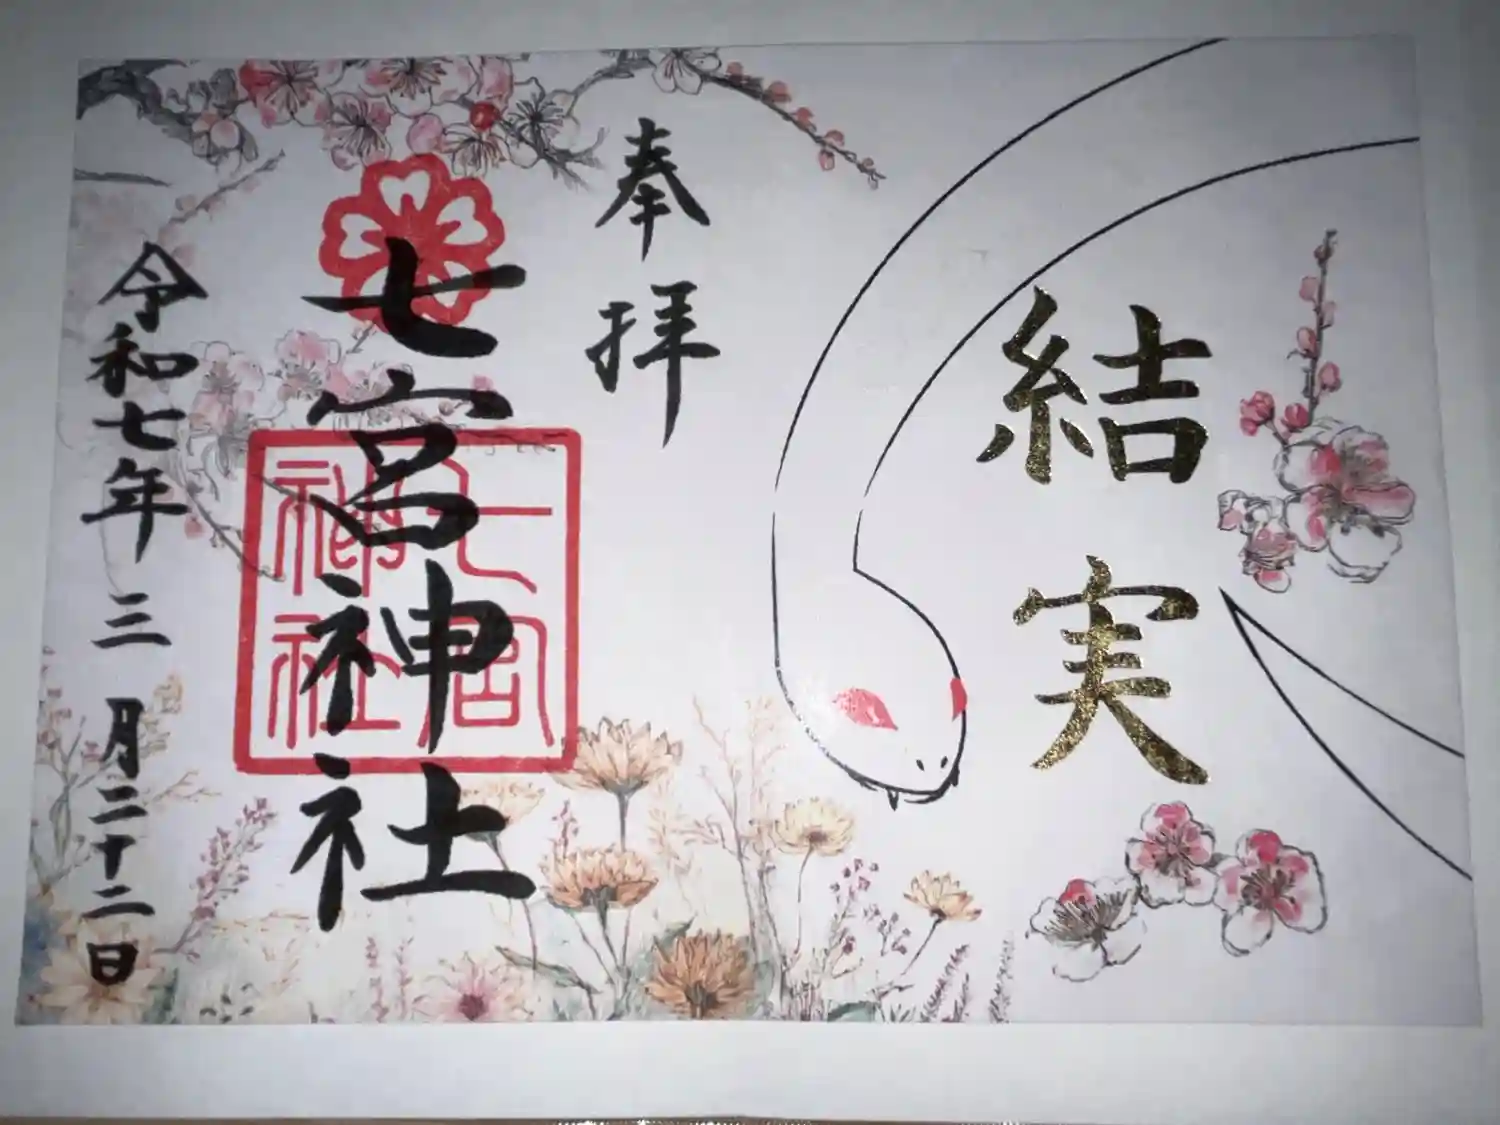 結実
奉拝
七宮神社
七宮
神社
令和七年三月二十二日